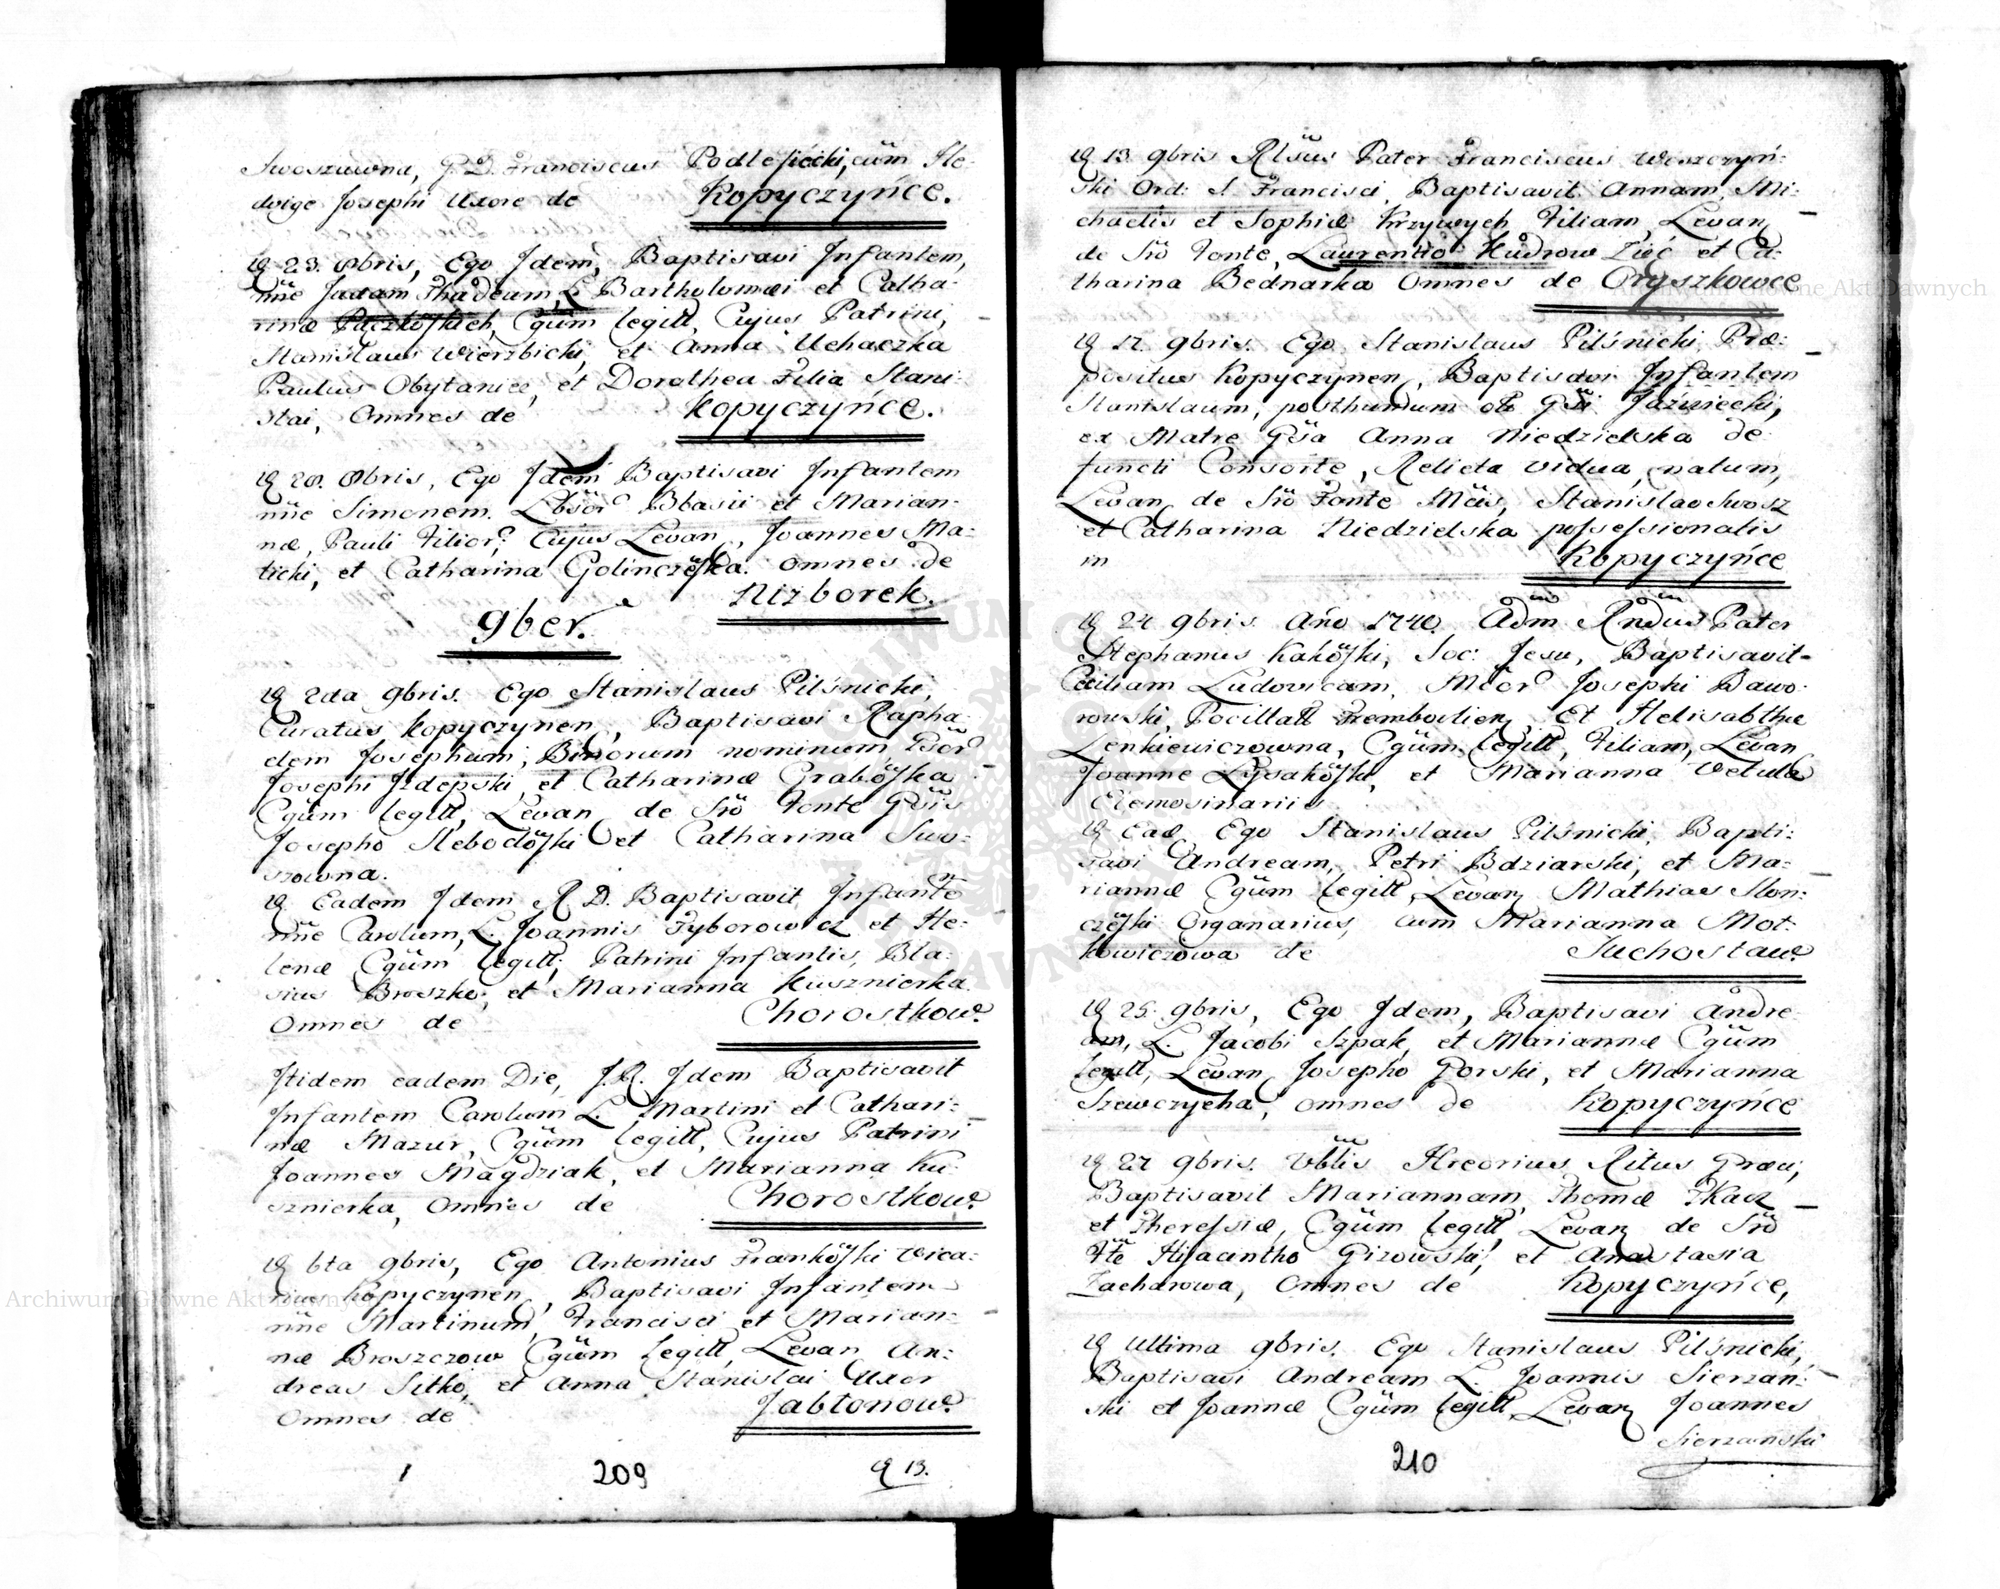 Swoszowna, G. D. Franciscus Podlesiecki, cum He-
dvige Josephi Uxore de Kopyczyńce.
23. 8bris, Ego Idem, Baptisavi Infantem,
nñe Judam Thadeum, L. Bartholomæi et Catha-
rinæ Paczkoskich, Cgüm legitt, Cujus Patrini,
Stanislaus Wierzbicki, et Anna Uchaczka
Paulus Obytaniec, et Dorothea Filia Stani-
slai, Omnes de Kopyczyńce.
28. 8bris, Ego Idem Baptisavi Infantem
nñe Simonem. Lbsor Blasii et Marian-
næ, Pauli Filior; Cujus Levan, Joannes Ma-
ticki, et Catharina Golinczeska. omnes de
Nizborek.
9ber.
2da 9bris. Ego Stanislaus Pilśnicki,
Curatus Kopyczynen, Baptisavi Rapha-
elem Josephum, Binorum nominum, Gsor
Josephi Izdepski, et Catharinæ Graboska
Cgüm legitt, Levan de Sro Fonte Gsis
Josepho Slebodoski et Catharina Swo-
szowna.
Eadem Idem R. D. Baptisavit Infante
nñe Carolum, L. Joannis Fyborowicz et He-
lenæ Cgüm legitt; Patrini Infantis, Bla-
sius Broszko, et Marianna Kusznierka.
Omnes de Chorostkow.
Itidem eadem Die, J. R. Idem Baptisavit
Infantem Carolum L. Martini et Cathari-
næ Mazur, Cgüm legitt, Cujus Patrini
Joannes Magdziak, et Marianna Ku-
sznierka, Omnes de Chorostkow.
6ta 9bris, Ego Antonius Frankoski Vica-
rius Kopyczynen, Baptisavi Infantem
nñe Martinum, Francisci et Marian-
næ Broszczow Cgüm legitt, Levan An-
dreas Sitko, et Anna Stanislai Uxor
Omnes de Jabłonow.
209
13.
13. 9bris Rlsüs Pater Franciscus Woszczyń-
ski Ord: S. Francisci, Baptisavit Annam, Mi-
chaelis et Sophiæ Krzywych Filiam, Levan
de Sro Fonte, Laurentio Kudrow Zięć et Ca-
tharina Bednarka Omnes de Oryszkowce
17. 9bris. Ego Stanislaus Pilśnicki, Præ-
positus Kopyczynen, Baptisavi Infantem
Stanislaum, posthumum olo Gsi Jaźwiecki,
ex Matre Gsa Anna Niedzielska de-
functi Consorte, Relicta vidua, natum,
Levan de Sro Fonte Mcis, Stanislao Swosz
et Catharina Niedzielska possessionalis
in Kopyczyńce
24 9bris. Año 1748. Adm Rndus Pater
Stephanus Kakoski, Soc: Jesu, Baptisavit
Cæciliam Ludovicam, Mcor Josephi Bawo-
rowski, Pocillatt Tremboulien et Helisabthæ
Lenkiewiczowna, Cgüm legitt, Filiam, Levan
Joanne Lysakoski, et Marianna Vetula
Elemosinariis.
Ead. Ego Stanislaus Pilśnicki, Bapti-
savi Andream, Petri Bdziarski, et Ma-
riannæ Cgüm legitt, Levan Mathias Slon-
czeski Organarius, cum Marianna Mot-
kowiczowa de Suchostaw
25. 9bris, Ego Idem, Baptisavi Andre-
am, L. Jacobi Szpak, et Mariannæ Cgüm
legitt, Levan Josepho Gorski, et Marianna
Szewczycha, omnes de Kopyczyńce
27 9bris. Vblis Hreorius Ritus Græci,
Baptisavit Mariannam, Thomæ Tkacz
et Theressiæ, Cgüm legitt, Levan de Sro
Fte Hijacintho Gizowski, et Anastasia
Zacharowa, Omnes de Kopyczyńce,
Ultima 9bris. Ego Stanislaus Pilśnicki,
Baptisavi Andream L. Joannis Sierzan-
ski et Joannæ Cgüm legitt, Levan Joannes
Sierzanski
210
Archiwum Główne Akt Dawnych
Archiwum Główne Akt Dawnych